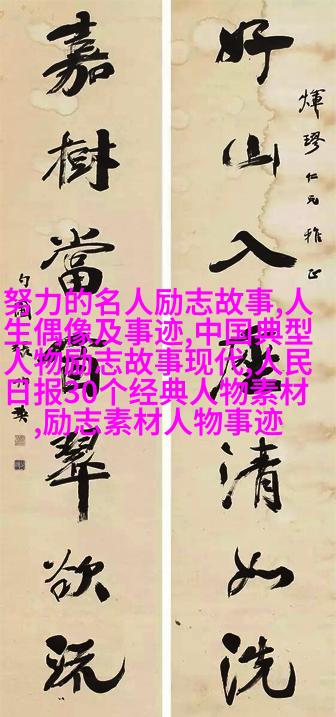 煇璆仁兄雅正
好山入座清如洗
嘉樹當翠欲流
努力的名人励志故事,人
生偶像及事迹,中国典型
人物励志故事现代,人民
日报30个经典人物素材
,励志素材人物事迹